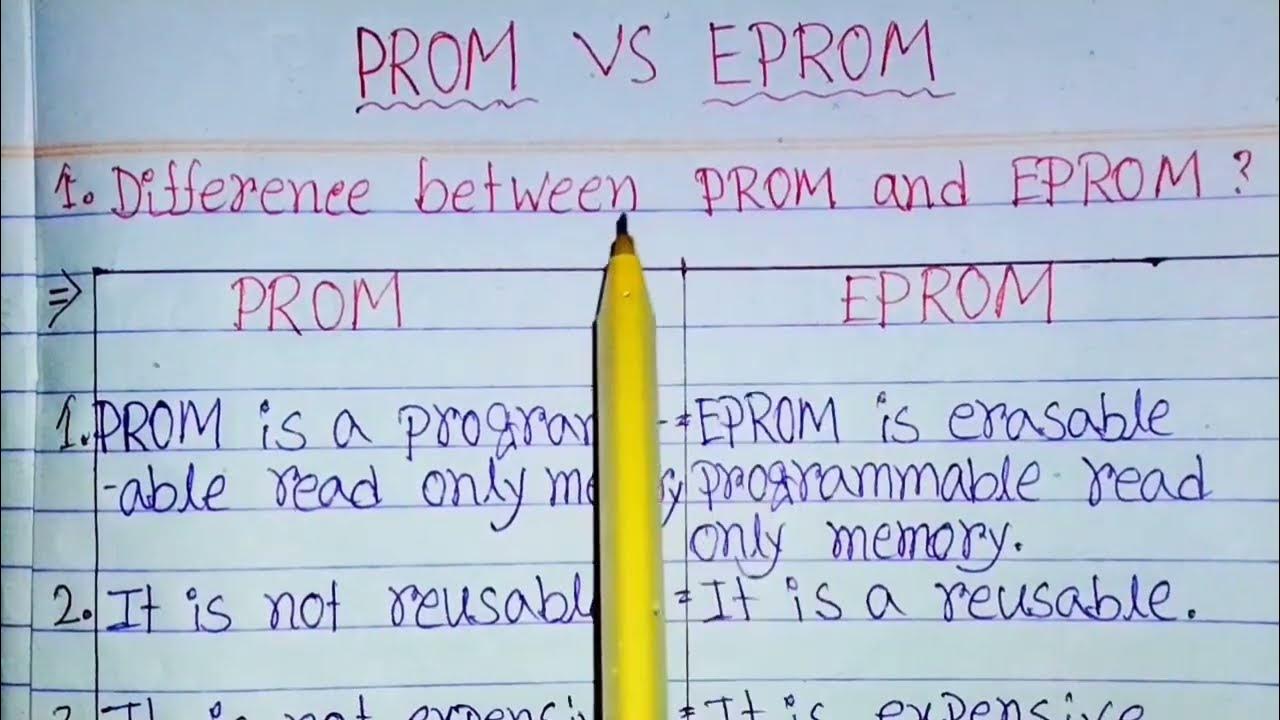 PROM VS EPROM
1. Difference between PROM and EPROM ?
⇒ PROM EPROM
1. PROM is a program
-able read only
EPROM is erasable
programmable read
only memory.
2. It is not
It is a reusable.
It is not
It is expensive